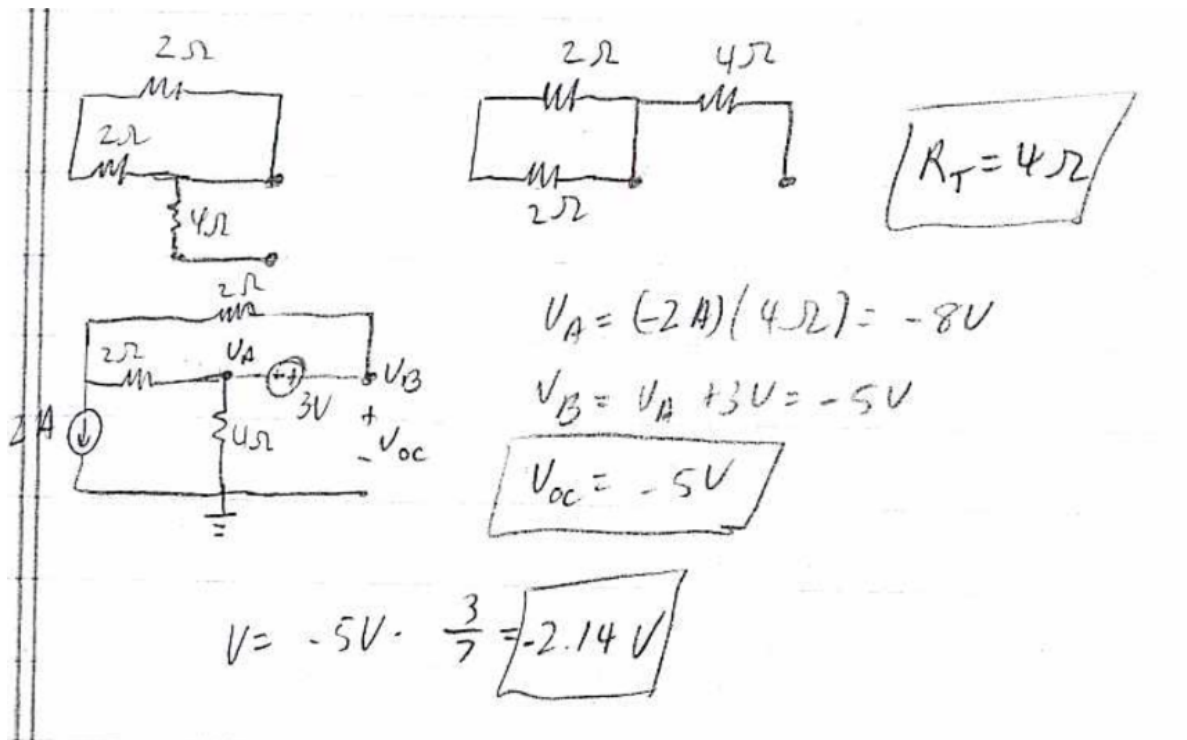 2Ω
2Ω
4Ω
2Ω 4Ω
2Ω
R_T = 4Ω
2Ω
2Ω V_A
- + 3V
V_B
2A
4Ω
+
V_oc
-
V_A = (-2A)(4Ω) = -8V
V_B = V_A + 3V = -5V
V_oc = -5V
V = -5V · 3/7 = -2.14 V